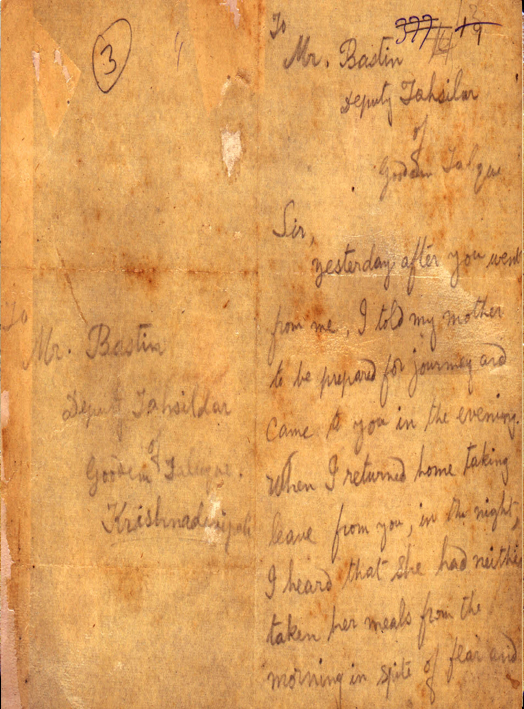 3
To
Mr. Bastin
Deputy Tahsildar
of
Goodem Taluque.
Krishnadevipeta
377
19
To
Mr. Bastin
Deputy Tahsilar
of
Goodem Taluque
Sir,
yesterday after you went
from me, I told my mother
to be prepared for journey and
came to you in the evening.
When I returned home taking
leave from you, in the night,
I heard that she had neither
taken her meals from the
morning in spite of fear and